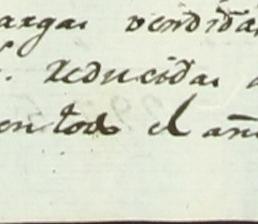 argas vendidas
reducidas a
en todo el añ